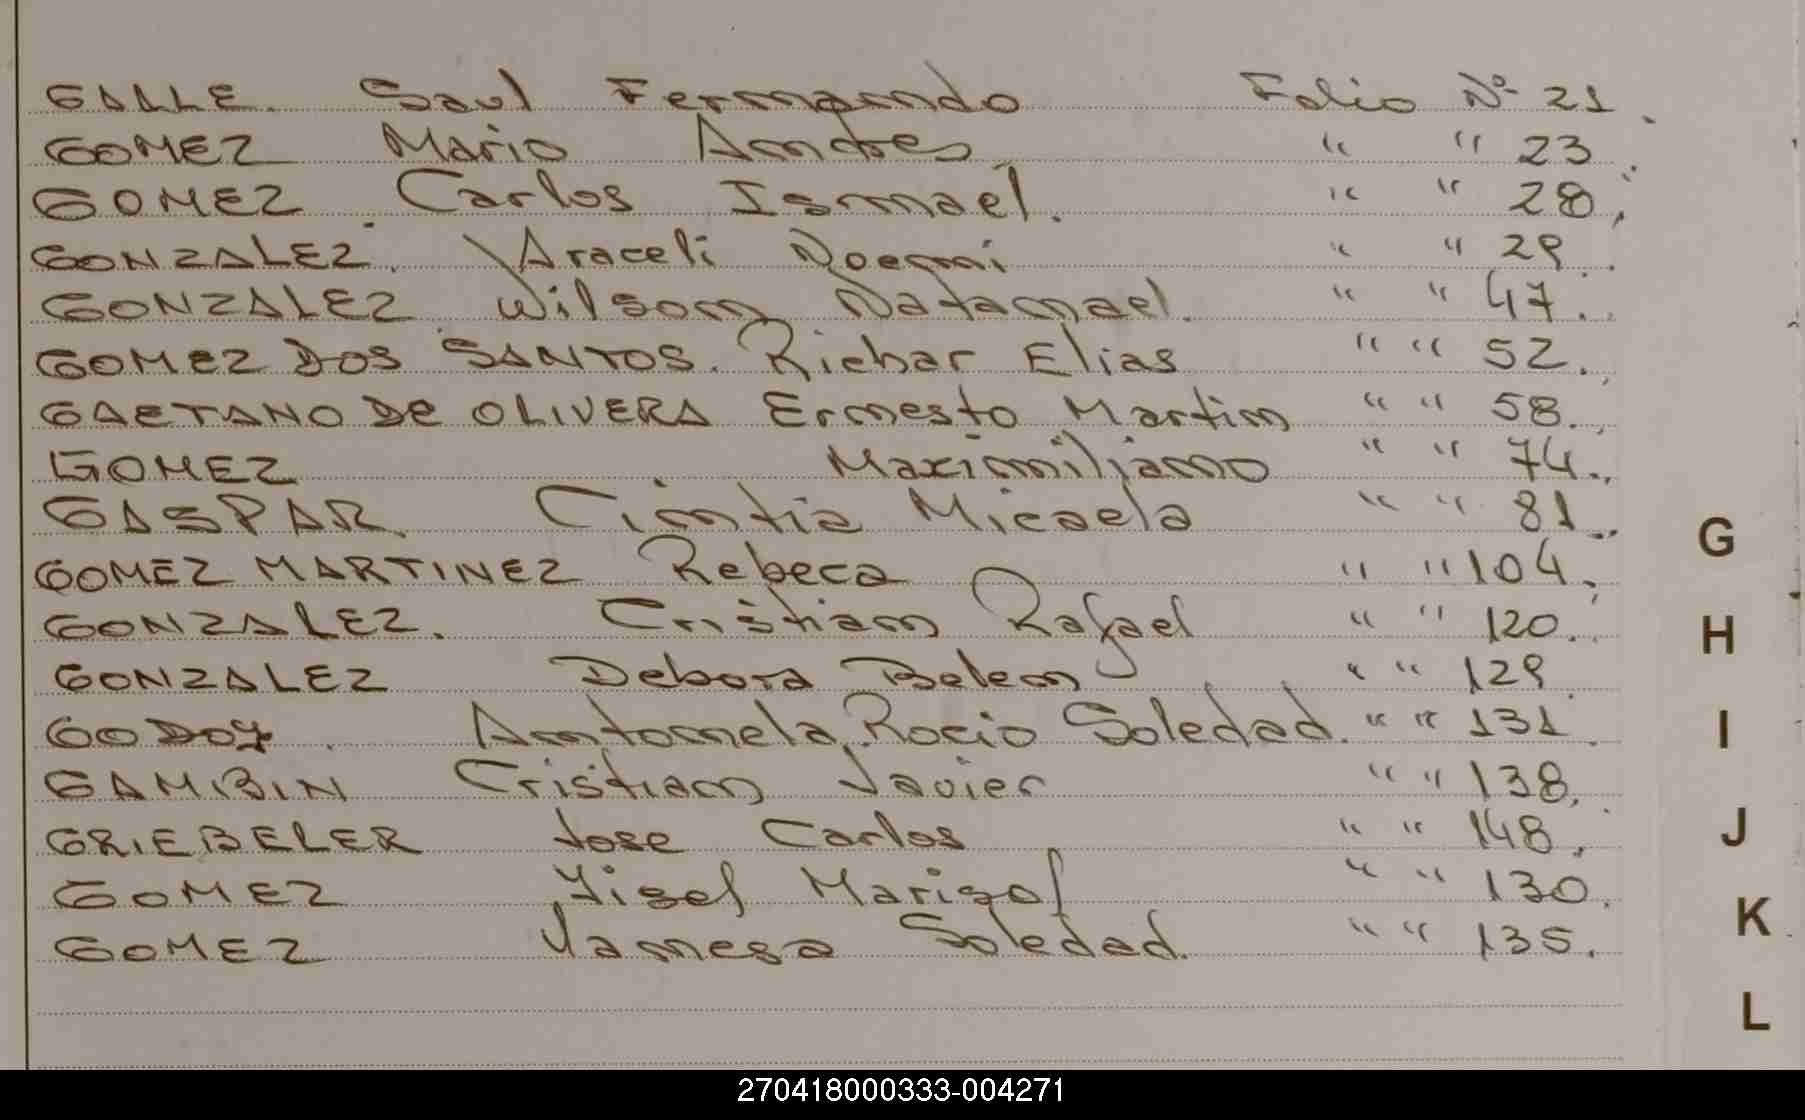 GALLE. Saul Fernando Folio Nº 21.
GOMEZ Mario Andres. " " 23.
GOMEZ Carlos Ismael. " " 28.
GONZALEZ. Araceli Noemi " " 29.
GONZALEZ Wilson Natanael. " " 47.
GOMEZ DOS SANTOS. Richar Elias " " 52.
GAETANO De OLIVERA Ernesto Martin " " 58.
GOMEZ Maximiliano " " 74.
GASPAR Cintia Micaela " " 81.
GOMEZ MARTINEZ Rebeca " " 104.
GONZALEZ. Cristian Rafael " " 120.
GONZALEZ Debora Belen " " 129.
GODOY. Antonela Rocio Soledad. " " 131.
GAMBIN Cristian Javier " " 138.
GRIEBELER Jose Carlos " " 148.
GOMEZ Yisel Marisol " " 130.
GOMEZ Vanesa Soledad. " " 135.
G
H
I
J
K
L
270418000333-004271